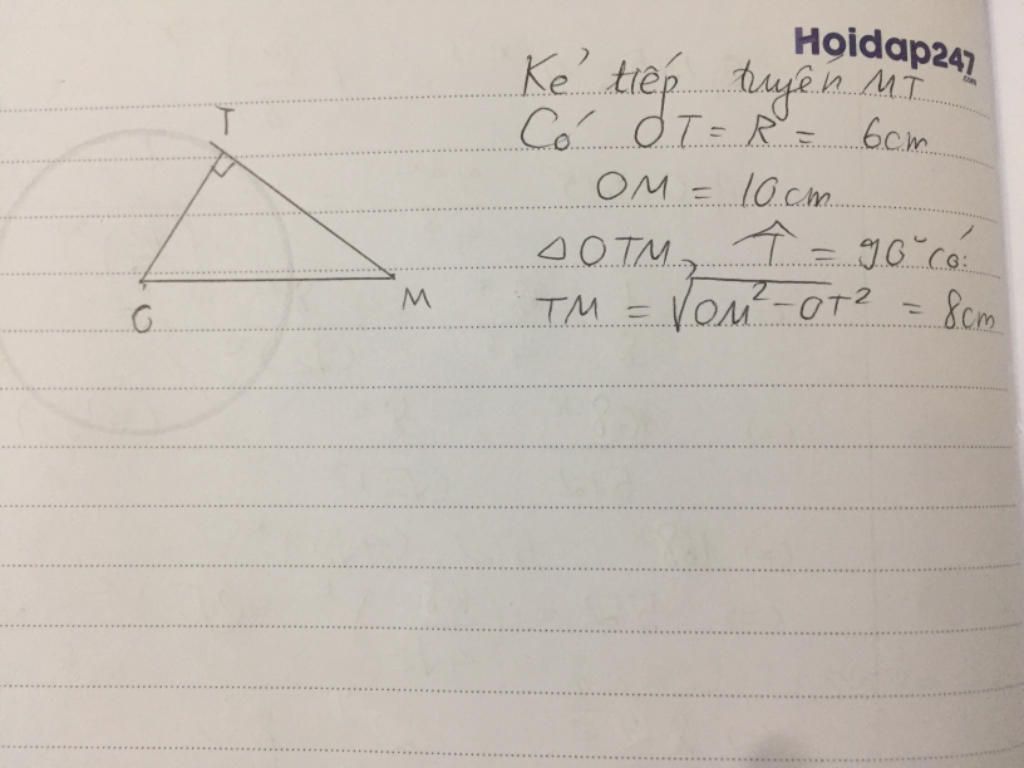 Hoidap247
.com
Kẻ tiếp tuyến MT
Có OT = R = 6cm
OM = 10cm
△OTM, T̂ = 90° có:
TM = √OM² - OT² = 8cm
T
O
M